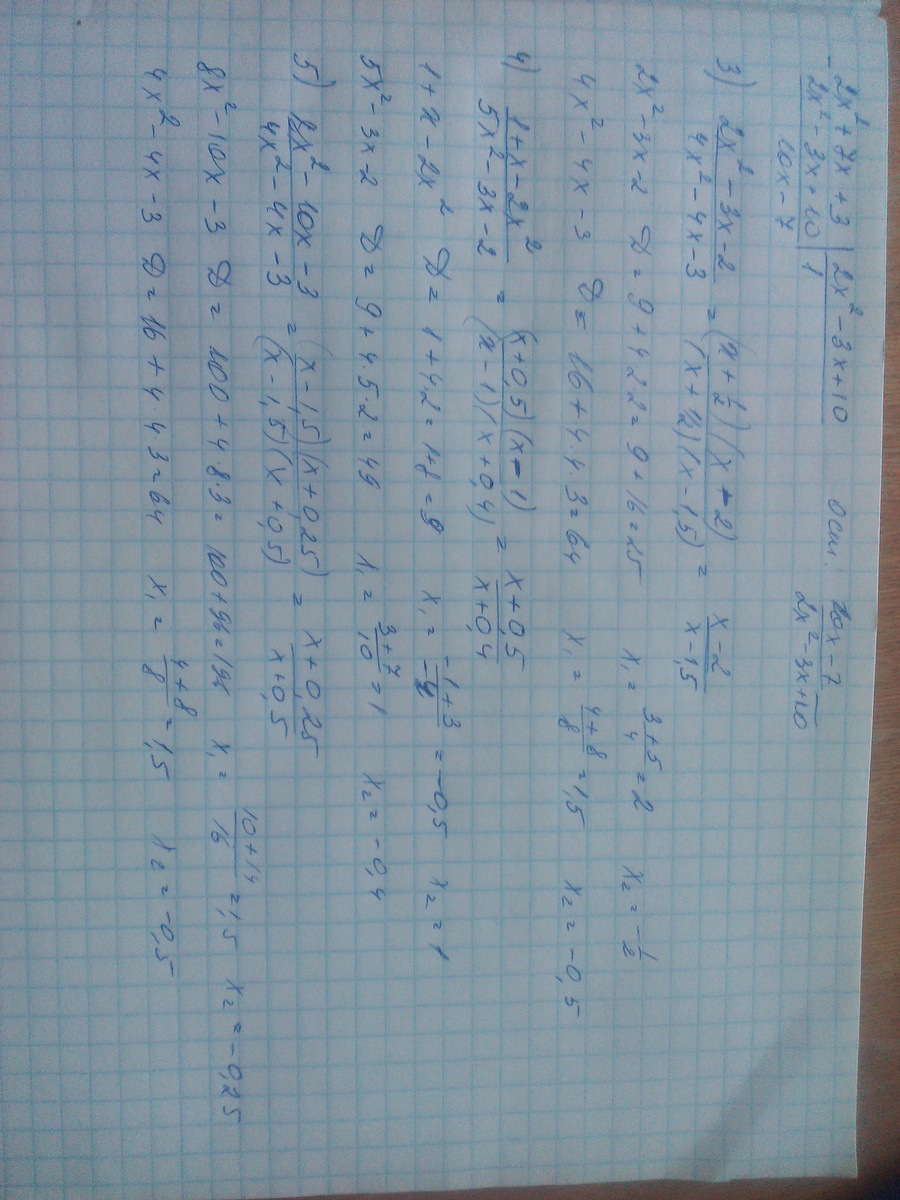 2x² + 7x + 3 | 2x² - 3x + 10 Ост. 10x - 7 / 2x² - 3x + 10
- 2x² - 3x + 10 | 1
10x - 7
3) (2x² - 3x - 2) / (4x² - 4x - 3) = (x + 1/2)(x - 2) / (x + 1/2)(x - 1,5) = (x - 2) / (x - 1,5)
2x² - 3x - 2 D = 9 + 4·2·2 = 9 + 16 = 25 x₁ = (3 + 5)/4 = 2 x₂ = -1/2
4x² - 4x - 3 D = 16 + 4·4·3 = 64 x₁ = (4 + 8)/8 = 1,5 x₂ = -0,5
4) (1 + x - 2x²) / (5x² - 3x - 2) = (x + 0,5)(x - 1) / (x - 1)(x + 0,4) = (x + 0,5) / (x + 0,4)
1 + x - 2x² D = 1 + 4·2 = 1+8 = 9 x₁ = (-1 + 3)/-4 = -0,5 x₂ = 1
5x² - 3x - 2 D = 9 + 4·5·2 = 49 x₁ = (3 + 7)/10 = 1 x₂ = -0,4
5) (8x² - 10x - 3) / (4x² - 4x - 3) = (x - 1,5)(x + 0,25) / (x - 1,5)(x + 0,5) = (x + 0,25) / (x + 0,5)
8x² - 10x - 3 D = 100 + 4·8·3 = 100 + 96 = 196 x₁ = (10 + 14)/16 = 1,5 x₂ = -0,25
4x² - 4x - 3 D = 16 + 4·4·3 = 64 x₁ = (4 + 8)/8 = 1,5 x₂ = -0,5